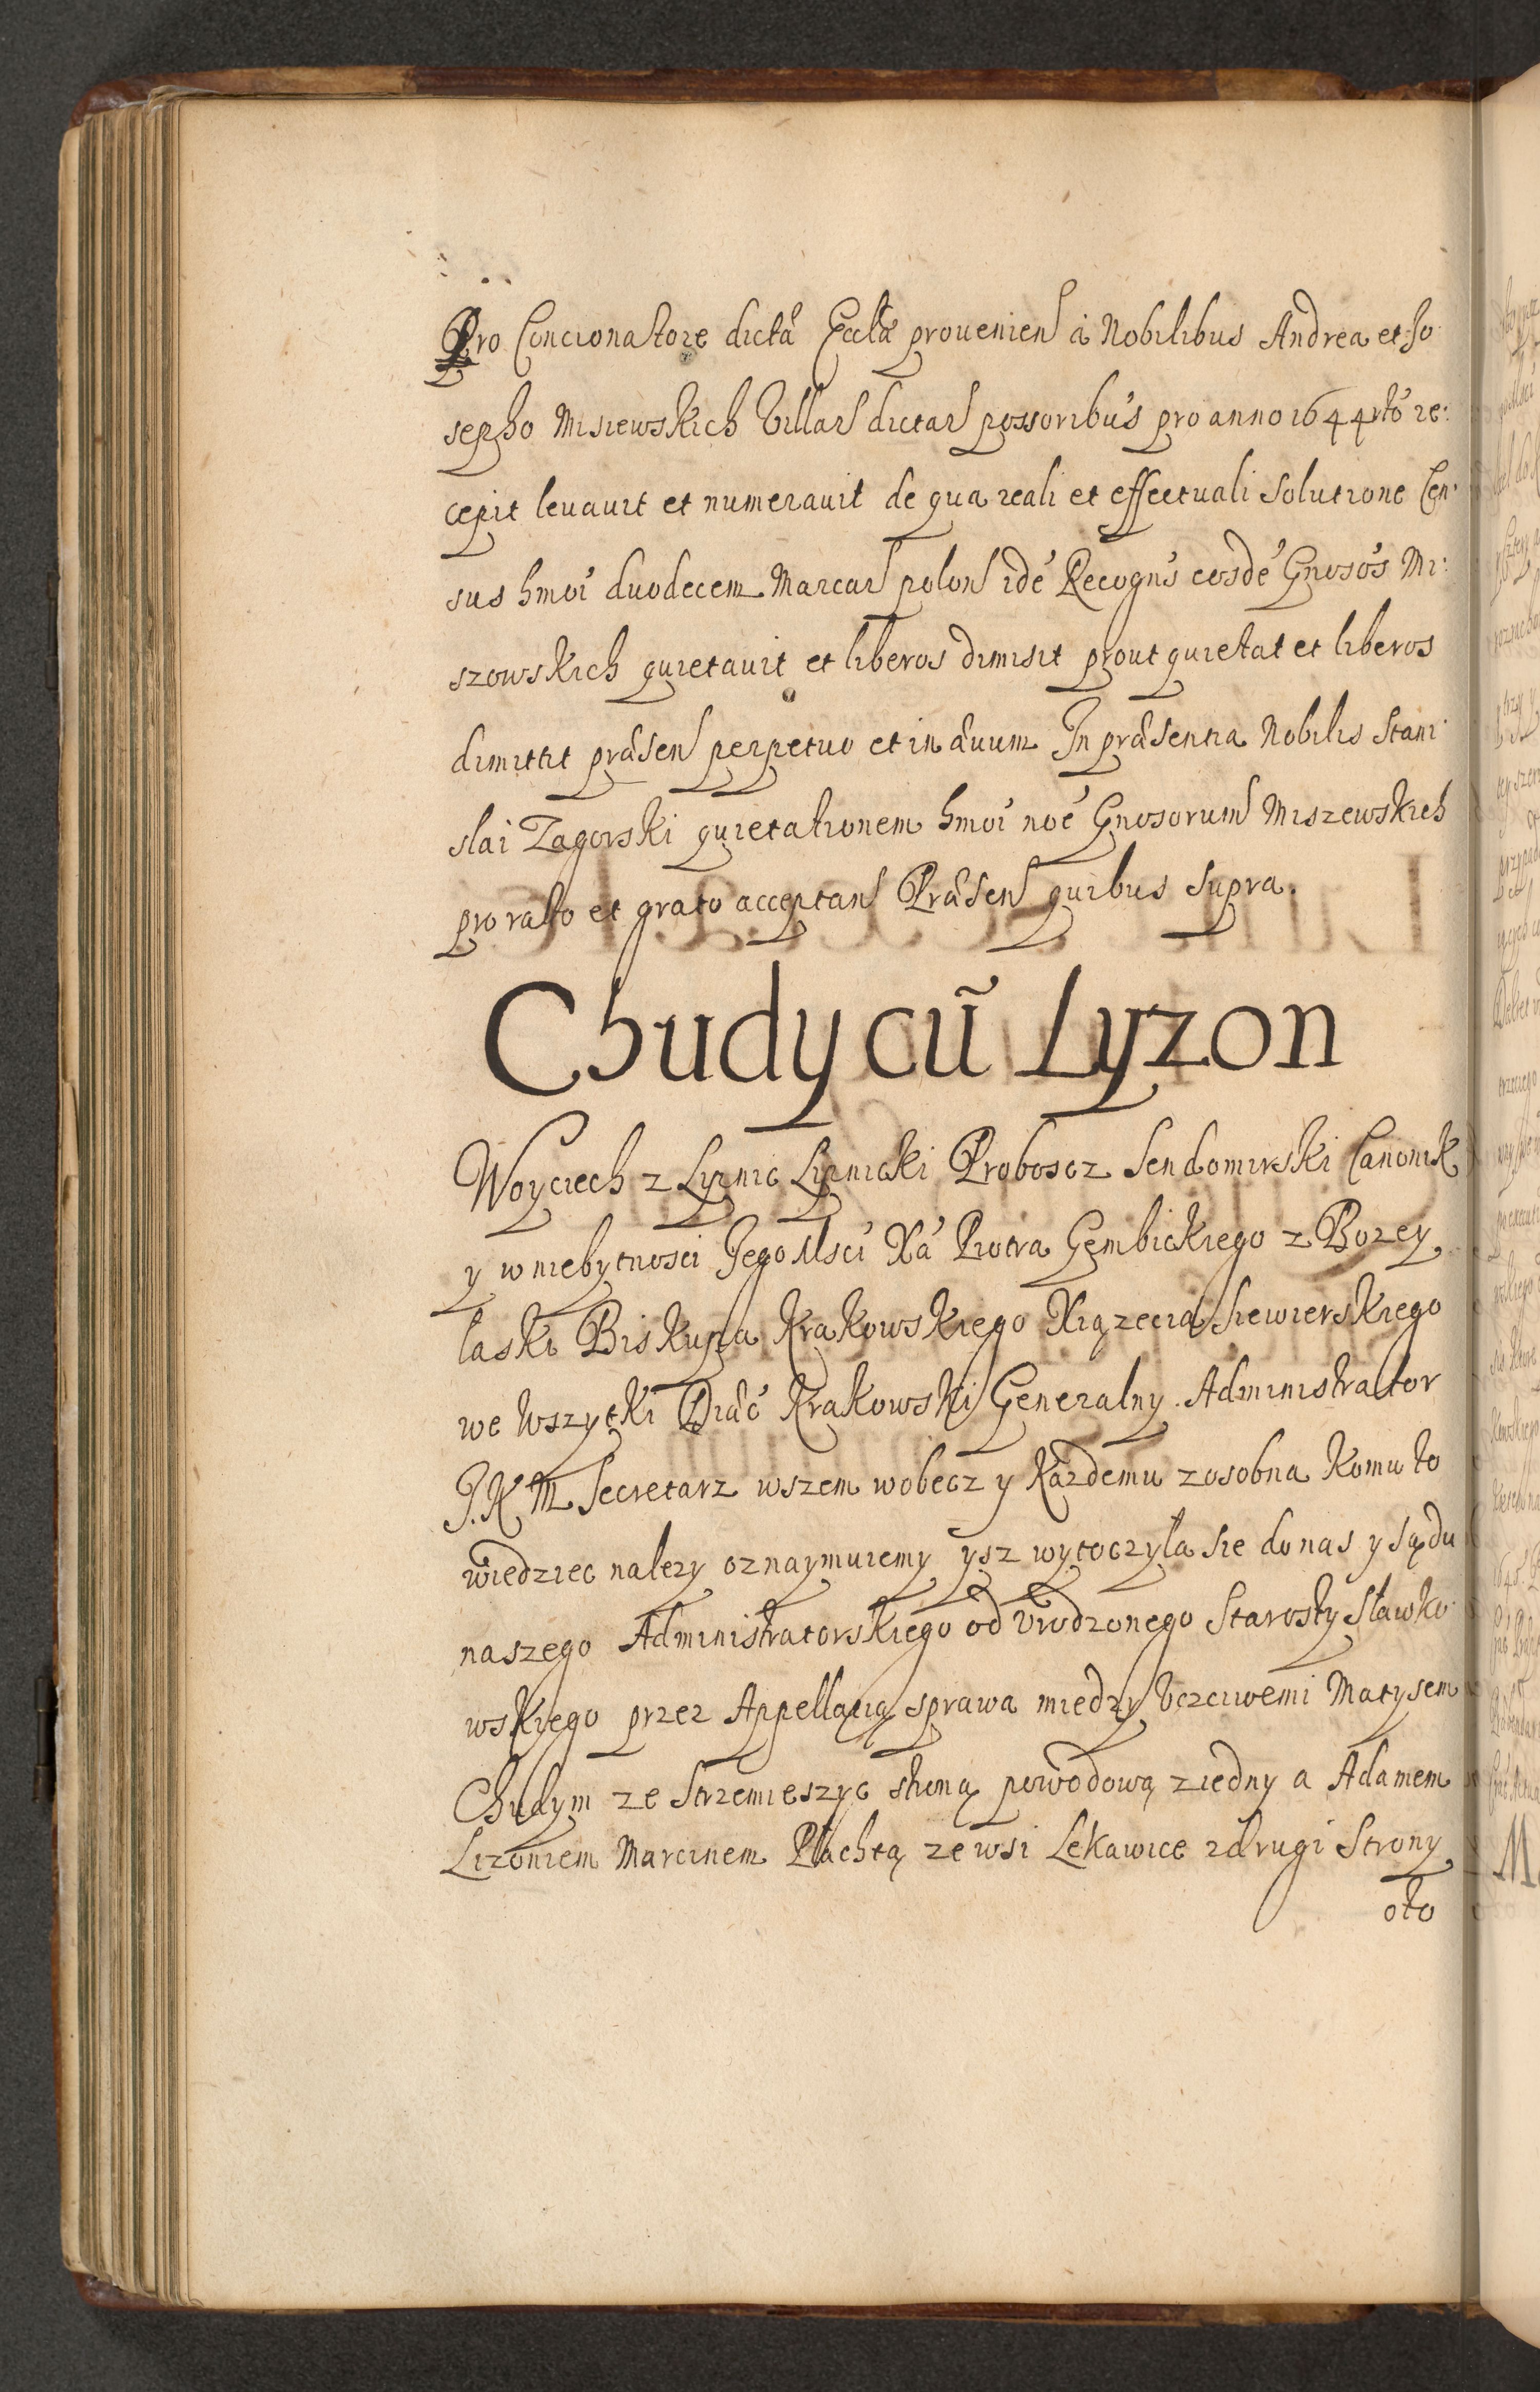 Pro Concionatore dictã Ecclã prouenien à Nobilibus Andrea et Jo
sepho Misiewskich Villar dictar possoribus pro anno 1644rtô re:
cepit levavit et numeravit de qua reali et effectuali Solutione Cen:
sus hmoi duodecem Marcar polon idé Recogns eosdé Gnosos Mi:
szowskich quietavit et liberos dimisit prout quietat et liberos
dimittit præsen perpetuo et in ævum In præsentia Nobilis Stani
slai Zagorski quietationem hmoi noé Gnosorum Miszewskich
pro rato et grato acceptan Præsen quibus Supra.
Chudy cũ Lyzon
Woyciech z Lipnic Lipnicki Proboscz Sendomirski Canonik
y w niebytnosci Jego Msci Xá Piotra Gembickiego z Bozey
laski Biskupa Krakowskiego Xiązecia Siewierskiego
we wszytki Diæc Krakowski Generalny Administrator
J. K. M Secretarz wszem wobecz y Kazdemu zosobna Komu to
wiedziec nalezy oznaymuiemy ysz wytoczyla sie do nas y sądu
naszego Administratorskiego od Vrodzonego Starosty Slawko
wskiego przez Appellacią sprawa miedzy Vczciwemi Matysem
Chudym ze Strzemieszyc stroną powodową ziedny a Adamem
Lizoniem Marcinem Plachtą ze wsi Lekawice zdrugi Strony
oto